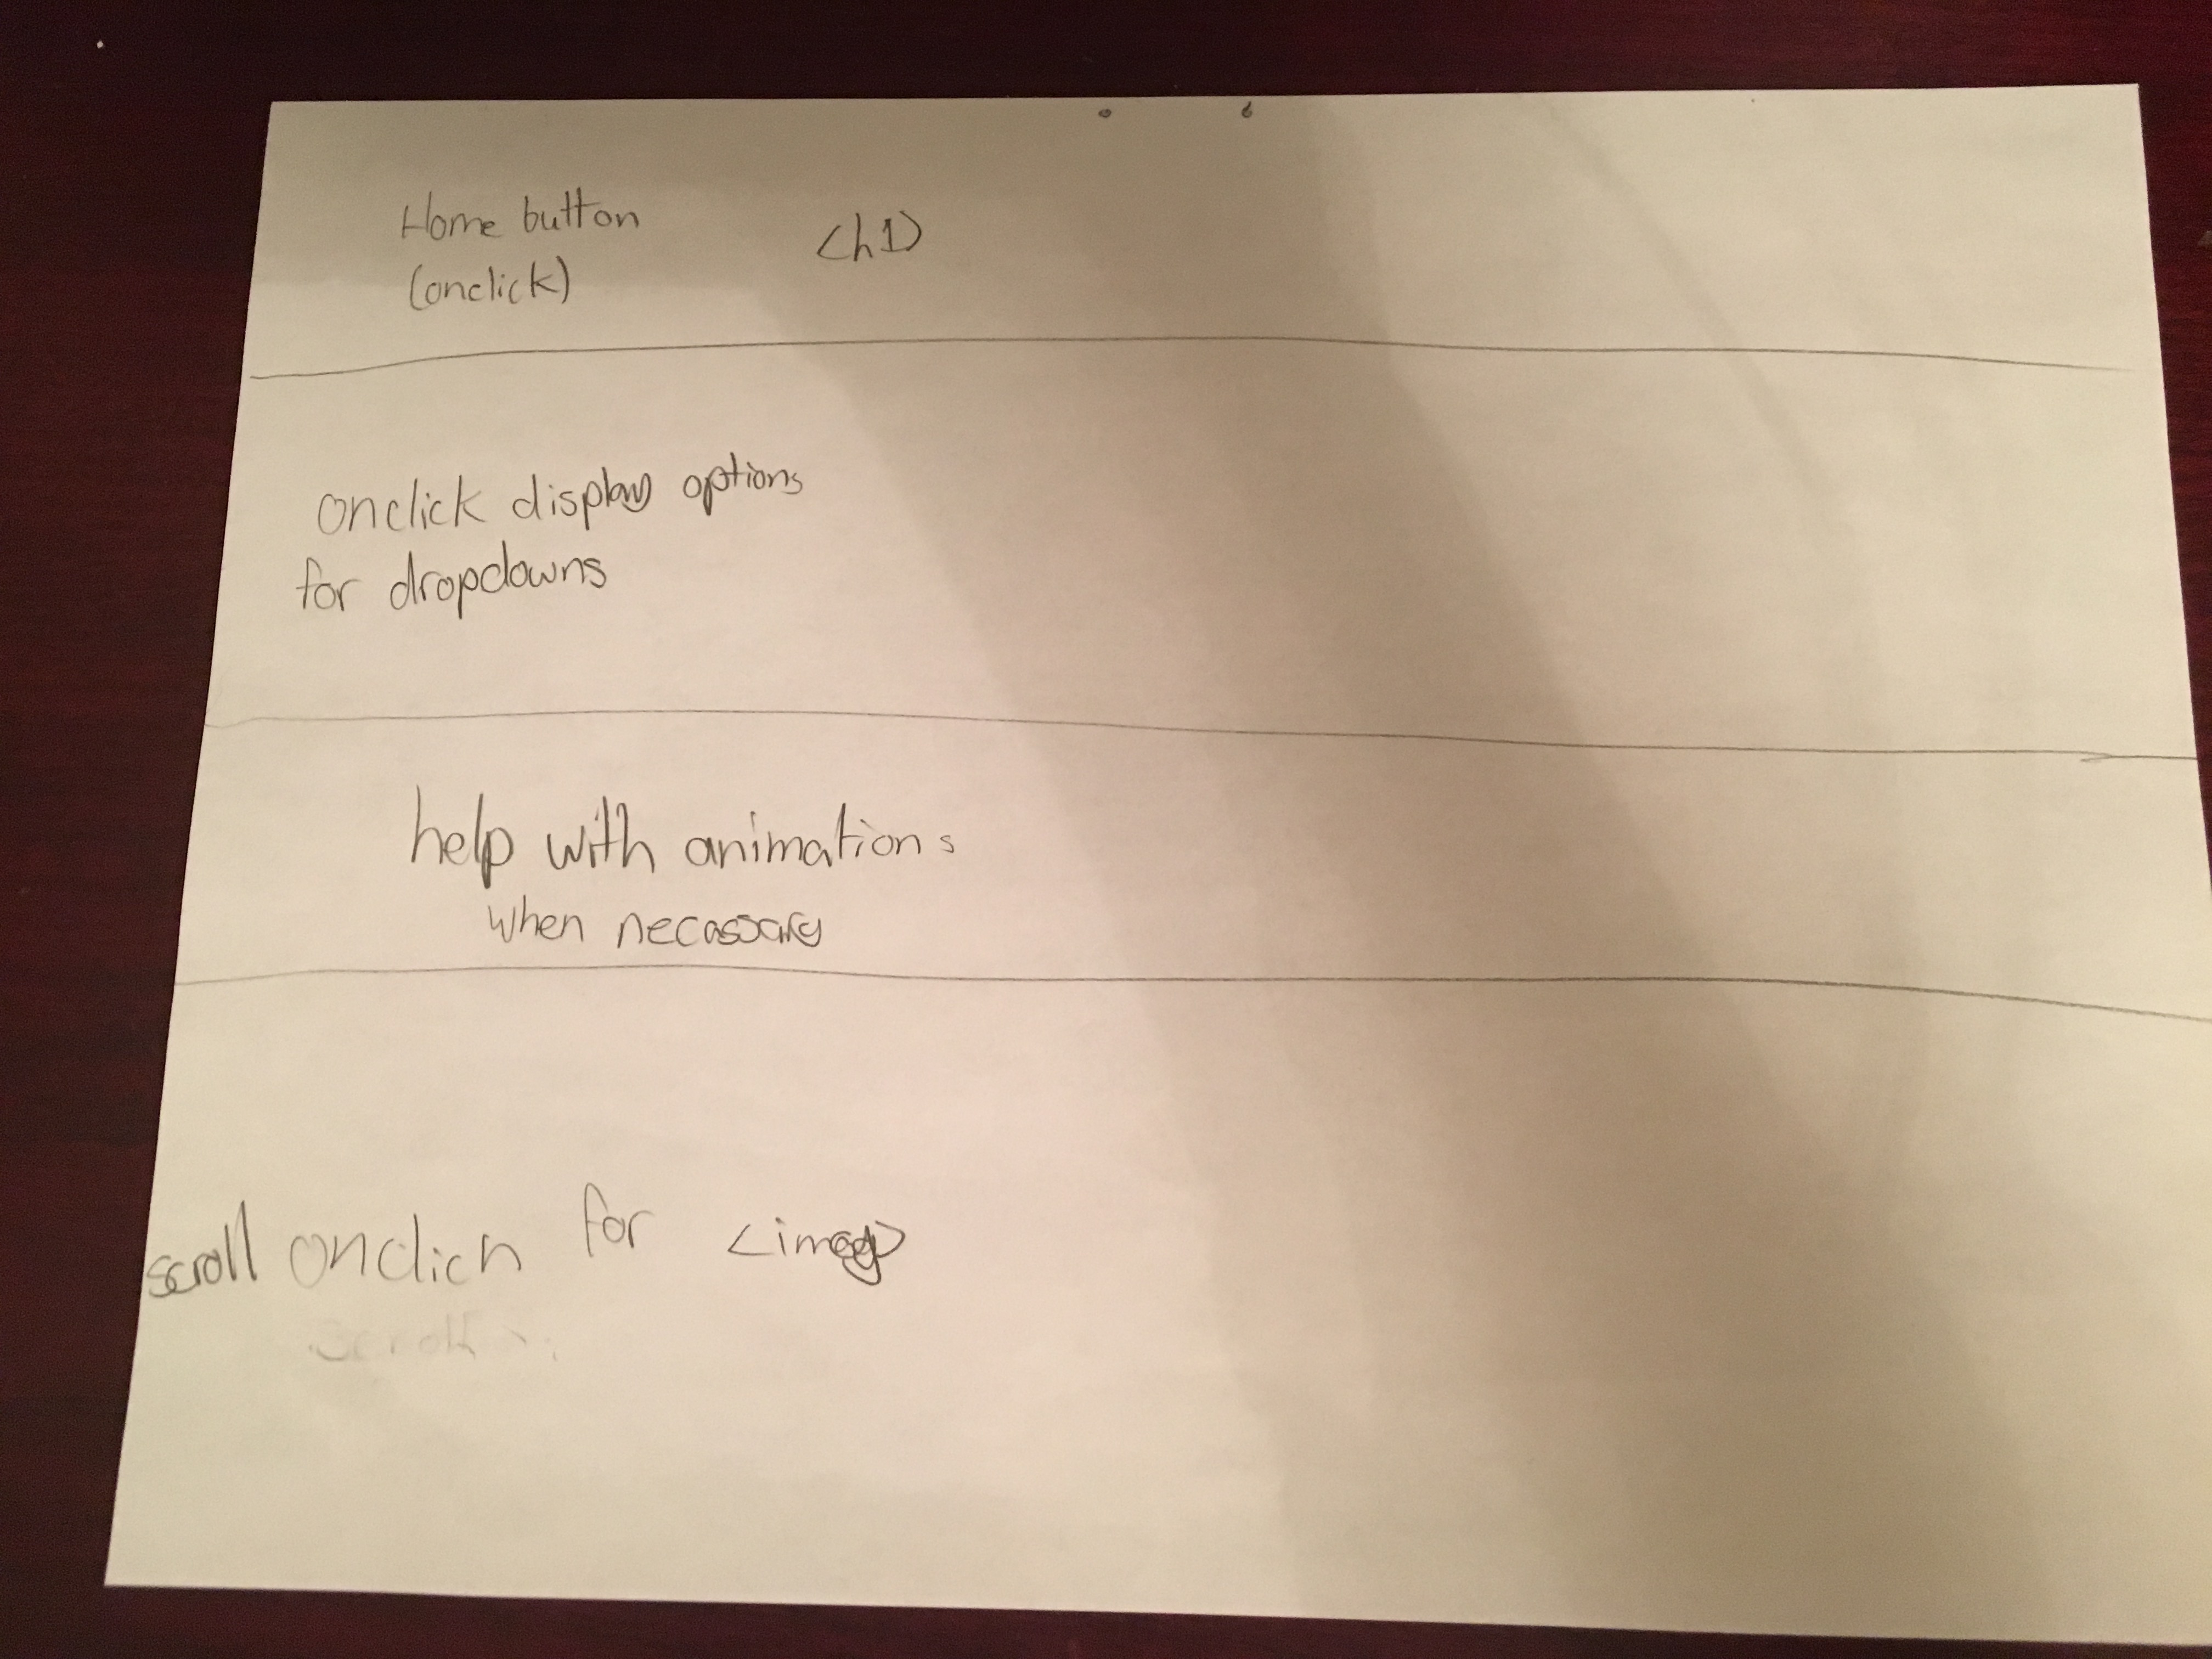 Home button <h1>
(onclick)
onclick display options
for dropdowns
help with animations
when necassary
scroll onclich for <image>
scroll